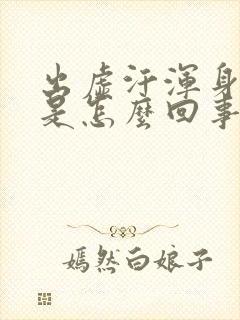 出虚汗浑身
是怎麽回事
嫣然白娘子